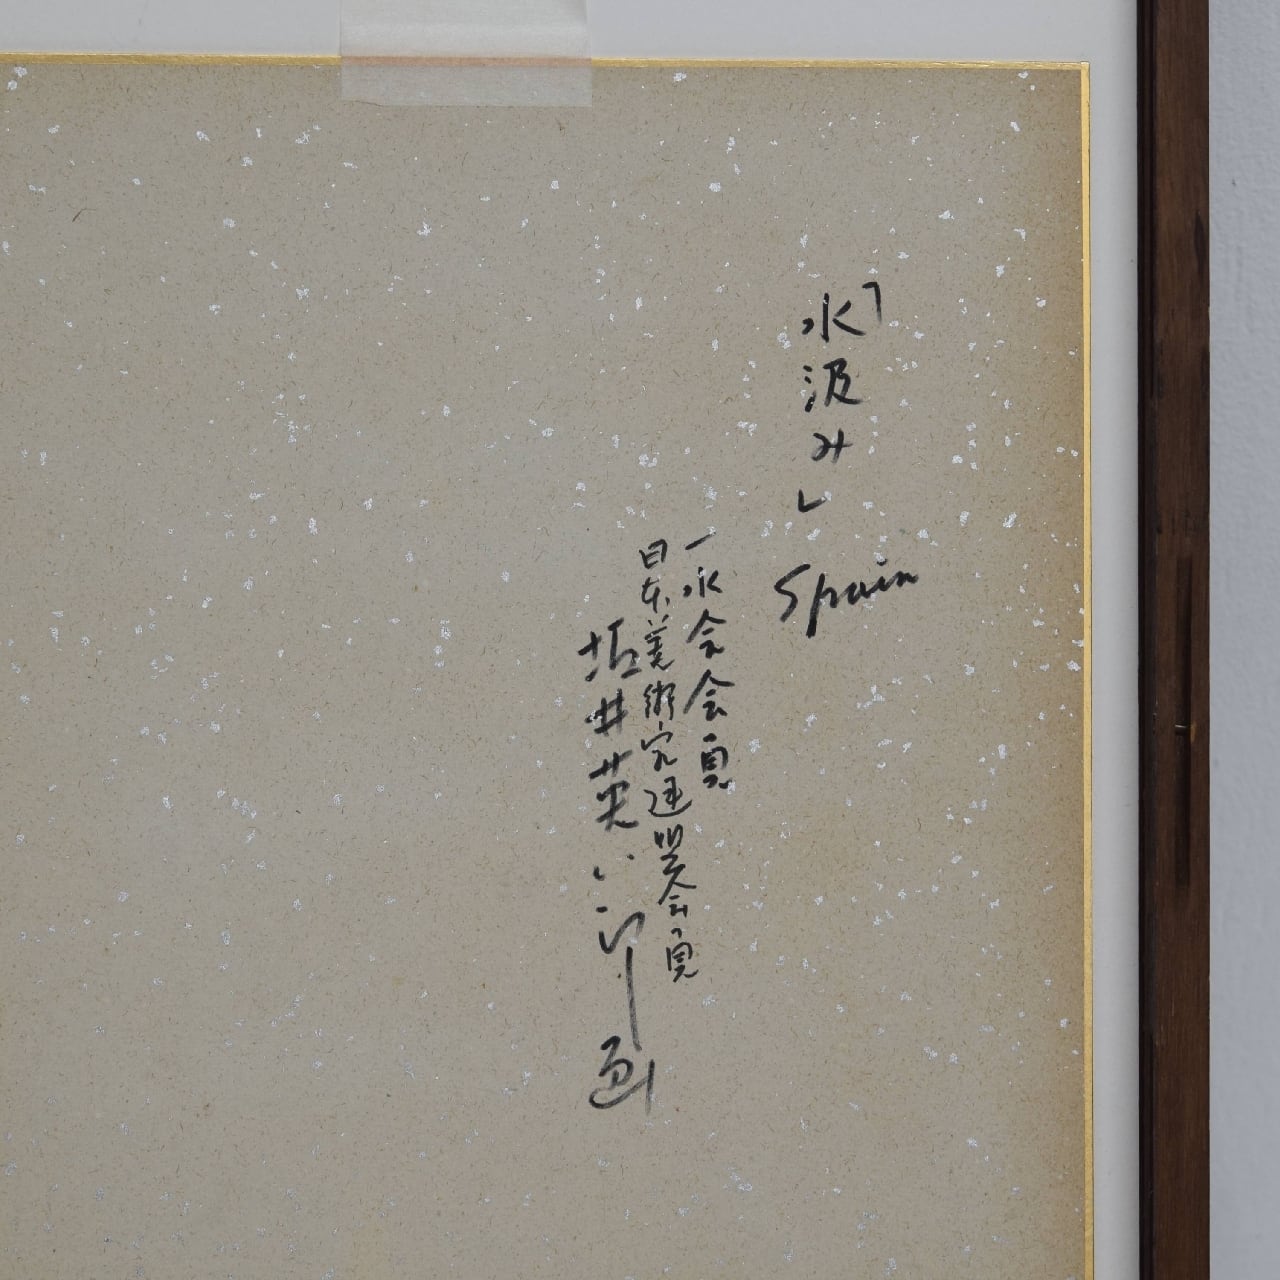 「水汲み」
Spain
一水会会員
日本美術家連盟会員
堀井英六郎画